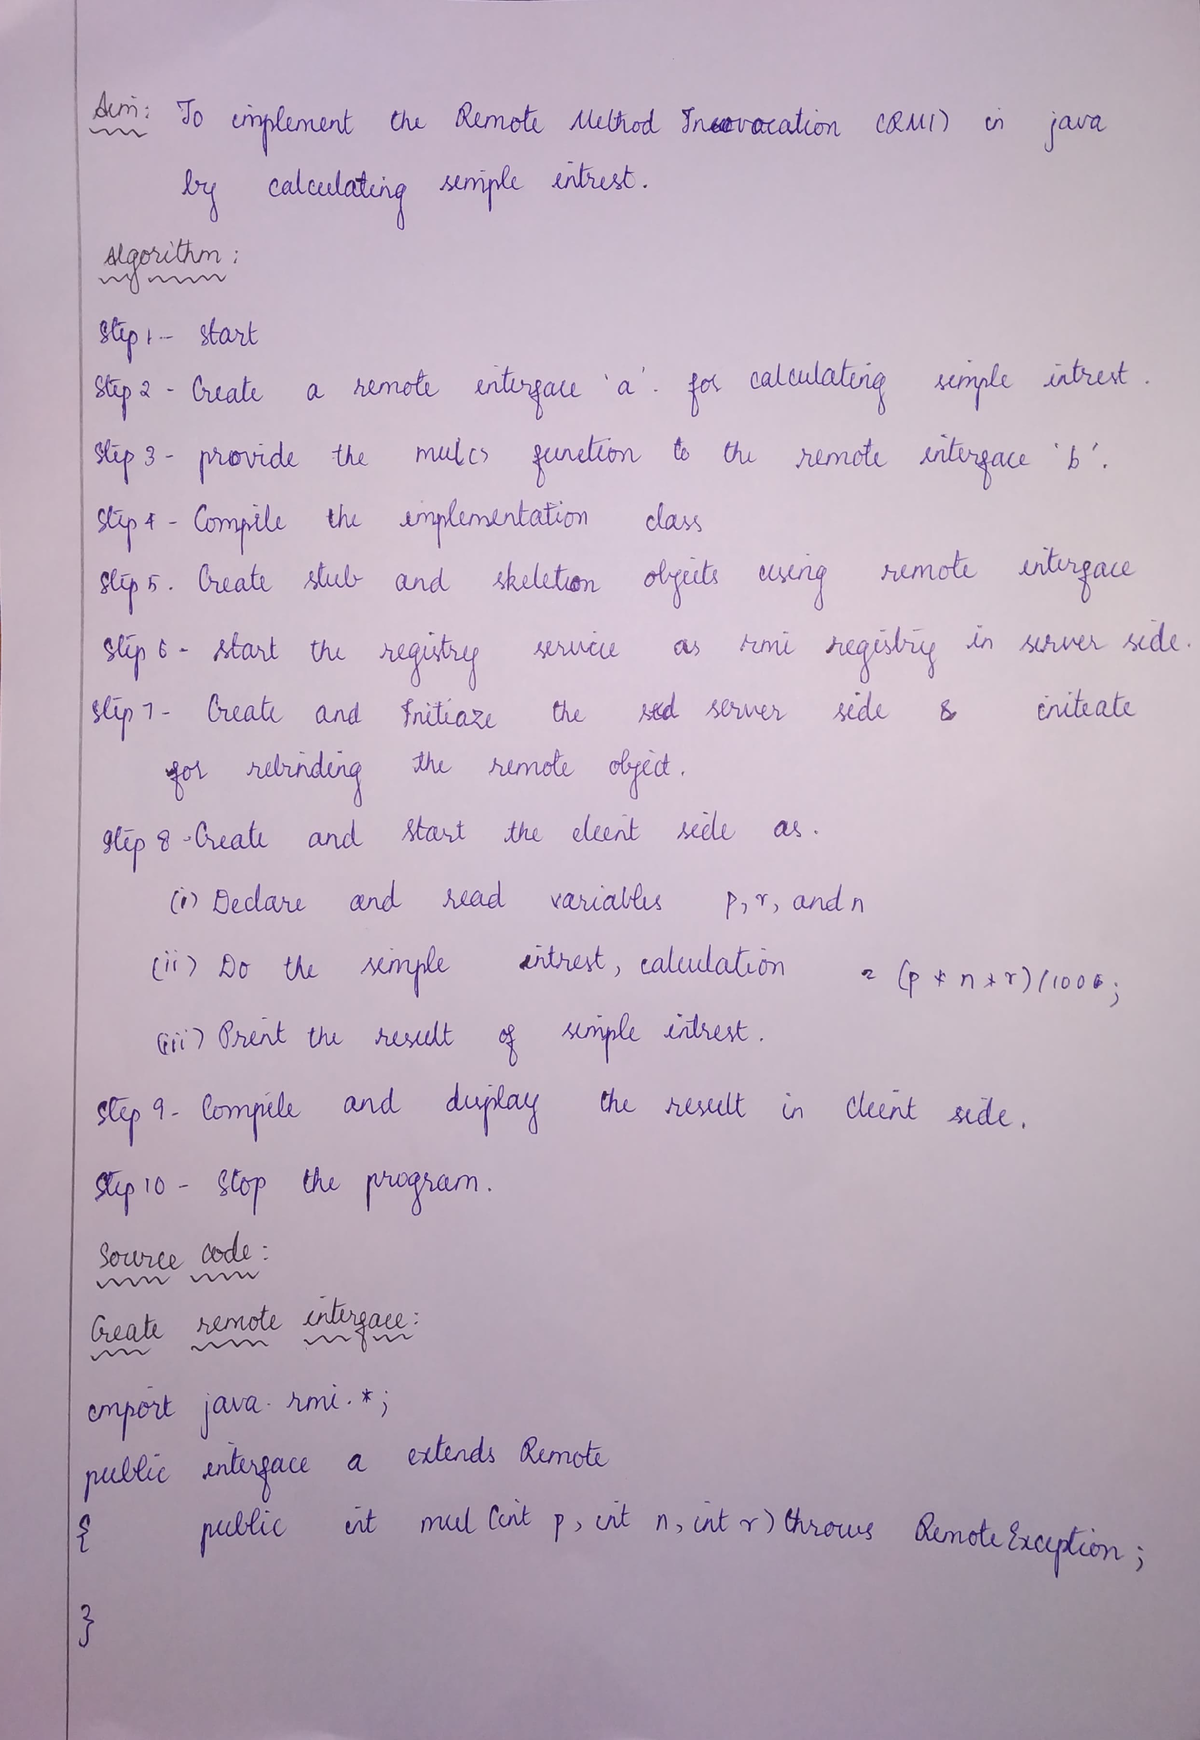 Aim: To implement the Remote Method Invocation (RMI) in java
by calculating simple intrest.
Algorithm:
Step 1 - Start
Step 2 - Create a remote interface 'a'. for calculating simple intrest.
Step 3 - provide the mul() function to the remote interface 'b'.
Step 4 - Compile the implementation class
Step 5. Create stub and skeleton objects using remote interface
Step 6 - start the registry service as rmi registry in server side.
Step 7 - Create and Initiaze the server side & initeate
for rebinding the remote object.
Step 8 - Create and Start the client side as.
(i) Declare and read variables p, r, and n
(ii) Do the simple intrest, calculation = (p * n * r)/100;
(iii) Print the result of simple intrest.
Step 9 - Compile and display the result in client side.
Step 10 - Stop the program.
Source code:
Create remote interface:
import java.rmi.*;
public interface a extends Remote
{ public int mul (int p, int n, int r) throws RemoteException;
}